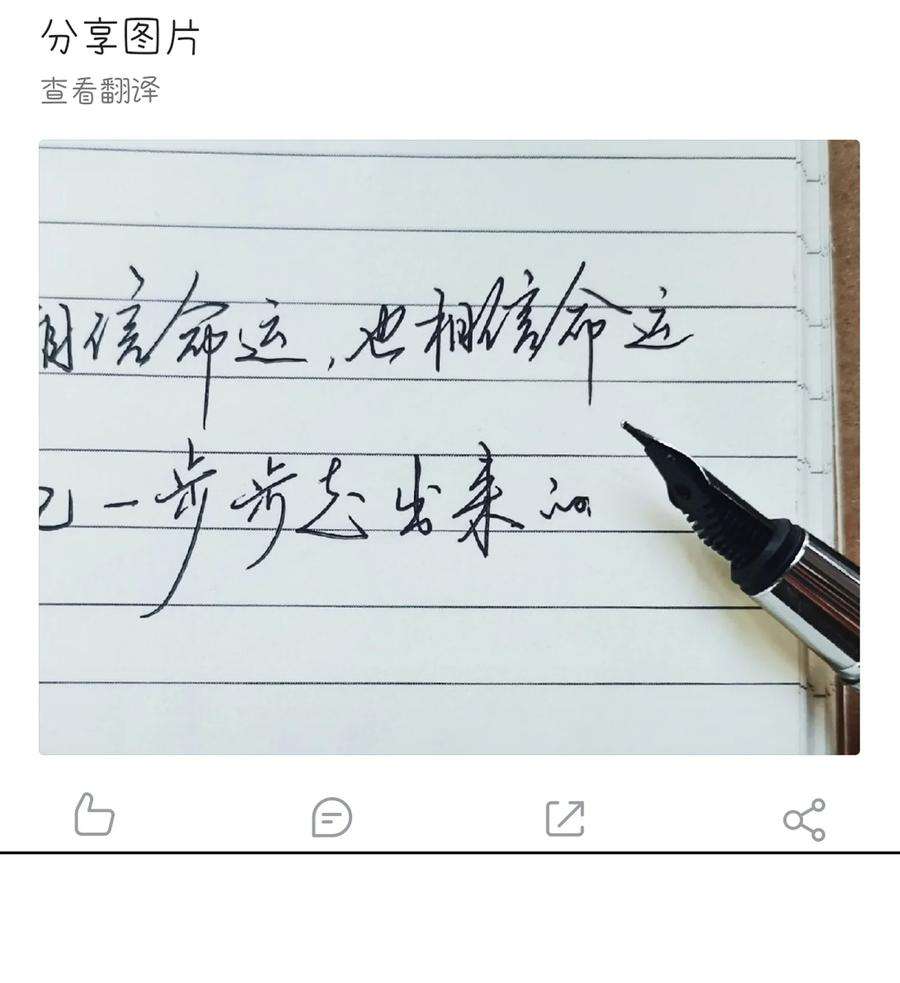 分享图片
查看翻译
相信命运,也相信命运
己一步步走出来的